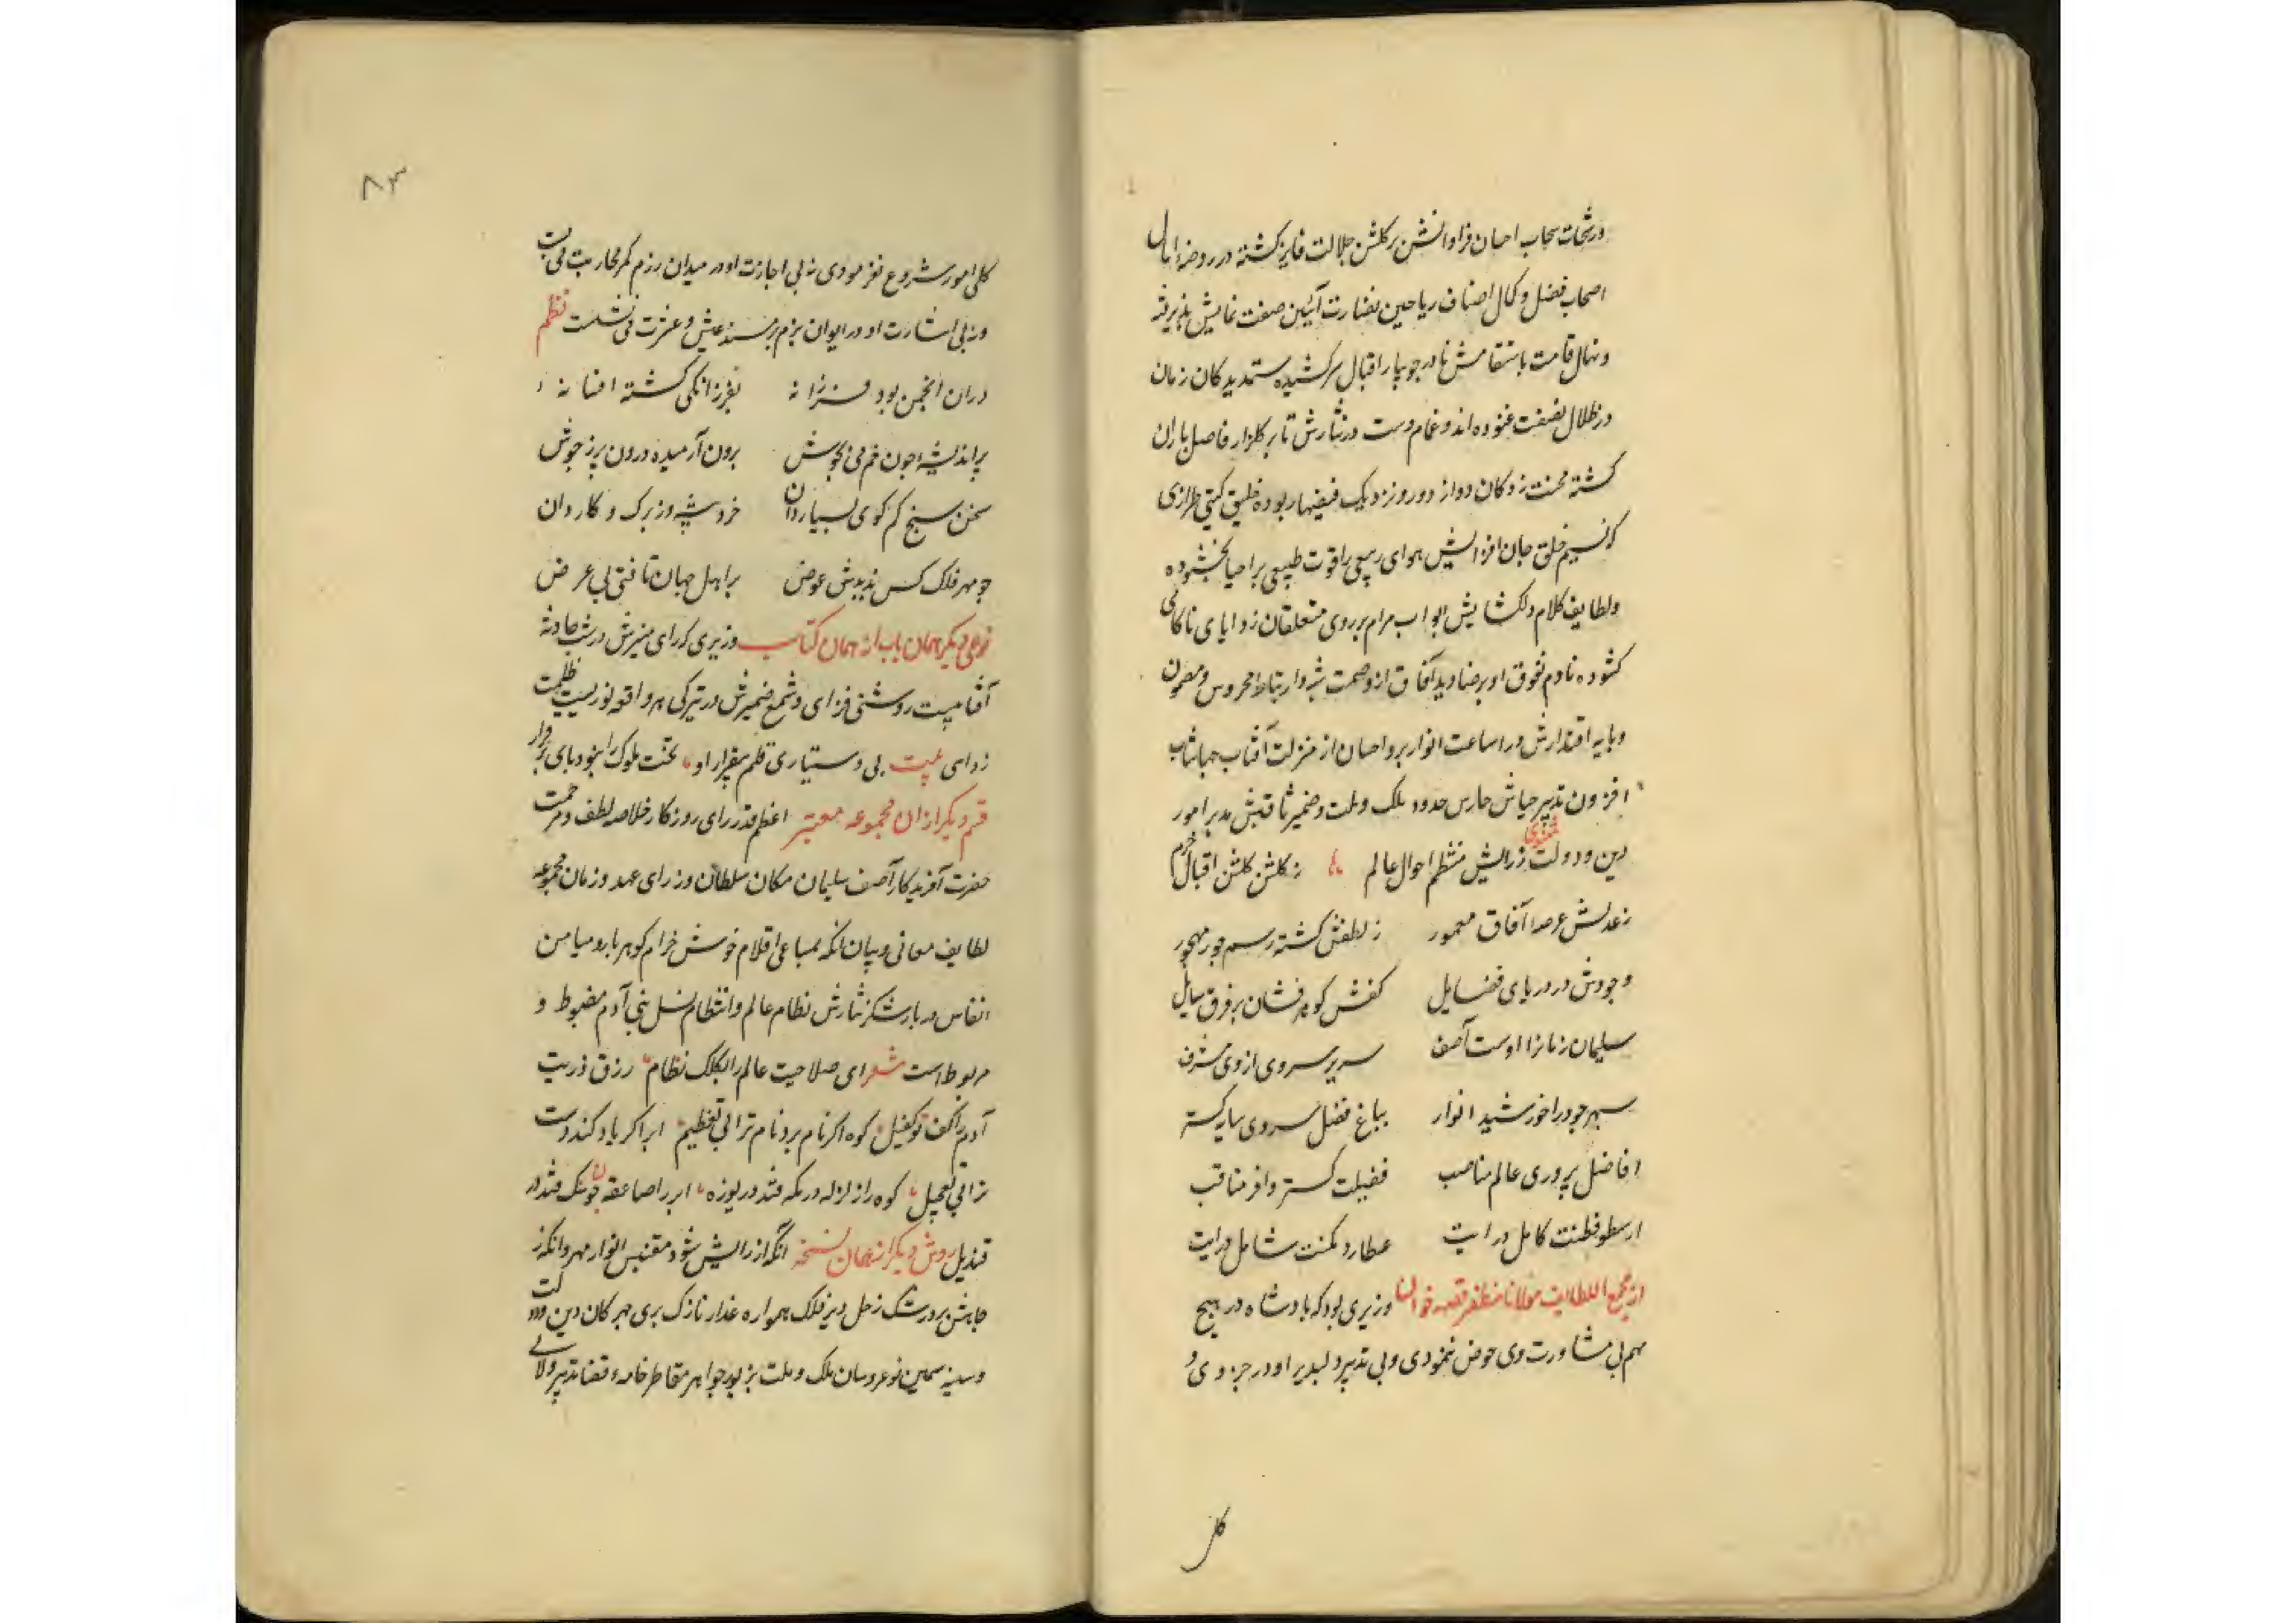 ورشحات سحاب احسان فراوانش بر گلشن جلالت فایز گشته در روضهٔ امال
اصحاب فضل و کمال اصناف ریاحین نضارت آئین صفت نمایش پذیرفته
ونهال قامت باستقامتش تا در جویبار اقبال سر کشیده ستمدیدگان زمان
در ظلال نصفت غنوده اند و غمام دست درنثارش تا بر گلزار فاصل باران
گشته محنت زدگان دور از دور و نزدیک فیضها ربوده خلیق گیتی طرازی
که نسیم خلق جان افزایش هوای ربیعی را قوت طبیعی بر احیا بخشوده
ولطایف کلام دلکشایش ابواب مرام بر روی متعلقان زوایای ناکامی
کشوده نادم تفوق او بر صنادید آفاق از وصمت شبه وارتباط محروس ومصون
و پایه اقتدارش در اساعت انوار بر واحسان از منزلت آفتاب جهانتاب
افزون تدبیر جهاتش حارس حدود ملک وملت وضمیر ثاقبش مدبر امور
دین ودولت مثنوی زرایش منتظم احوال عالم زگلشن گلشن اقبال خرم
زعدلش عرصهٔ آفاق معمور زلطفش گشته رسم جور مهجور
وجودش در دریای فضایل کفش گوهر فشان بر فرق سایل
سلیمان زمانرا اوست آصف سریر سروری از وی مشرف
سپهر جود را خورشید انوار بباغ فضل سروی سایه گستر
افاضل پروری عالم مناصب فضیلت گستر وافر مناقب
ارسطو فطنت کامل درایت عطارد مکنت شامل درایت
از مجمع اللطایف مولانا مظفر قصه خوان وزیری بود که پادشاه در هیچ
مهم بی مشاورت وی خوض ننمودی وبی تدبیر دلپذیر او در جزوی و
کل
۸۳
کلی امور شروع نفرمودی نه بی اجازت او در میدان رزم کمر محاربت می بست
ونه بی اشارت او در ایوان بزم بر مسند عیش و عشرت می نشست نظم
دران انجمن بود فرزانه بفرزانگی گشته افسانه
پر اندیشه چون خم می بجوش برون آرمیده درون پر ز جوش
سخن سنج کم گوی بسیار دان خرد پیشه و زیرک و کاردان
چو مهر فلک کس ندیدش عوض بر اهل جهان تافتی بی عرض
نوعی دیگر همان باب از همان کتاب وزیری که رای منیرش در شب حادثه
آفتابیست روشنی فزای وشمع ضمیرش در تیرگی هر واقعه نوریست ظلمت
زدای بیت بی دستیاری قلم بیقرار او تخت ملوک را نبود پای بر قرار
قسم دیگر از ان مجموعه معتبر اعظم قدر رای روزگار خلاصه لطف ومرحمت
حضرت آفریدگار آصف سلیمان مکان سلطان وزرای عهد وزمان مجموعه
لطایف معانی وبیان آنکه بمساعی اقلام خوش خرام گوهر بار ومیامن
انفاس دربار شکر نثارش نظام عالم وانتظام نسل بنی آدم مضبوط و
مربوط است شعر ای صلاحیت عالم را بکلک نظام رزق ذریت
آدم را کف تو کفیل کوه اگر نام برد نام ترا بی تعظیم ابر اگر یاد کند دست
ترا بی تبجیل کوه را زلزله در مکه فتد در یوزه ابر را صاعقه چونانک فتد در
قندیل روش دیگر از همان نسخه آنکه از رایش شود مقتبس انوار مهر وانکه ز
جاهش برد رشک زحل دیر فلک همواره عذار نازک بری مهرکان دین ودولت
وسینه سمین نوعروسان ملک وملت بزیور جواهر متقاطر خامهٔ قضا تدبیر ولالی